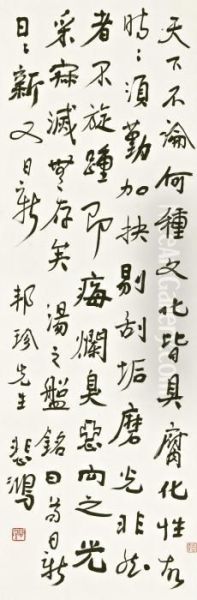 天下不論何種文化皆具腐化性故
時〻須勤加抉剔刮垢磨光非然
者不旋踵即痗爛臭惡向之光
采寂滅無存矣湯之盤銘曰苟日新
日〻新又日新 邦珍先生 悲鴻